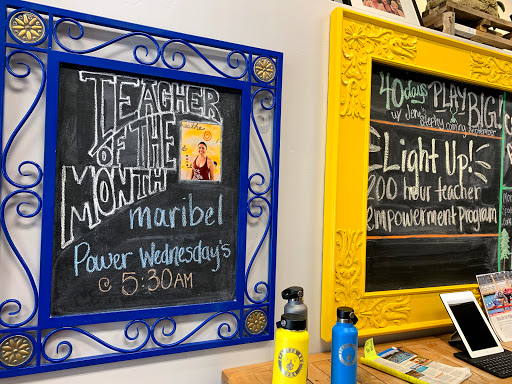 TEACHER
OF THE
MONTH
maribel
Power Wednesday's
@ 5:30AM
40 days PLAY BIG!
Light Up!
200 hour teacher
empowerment program